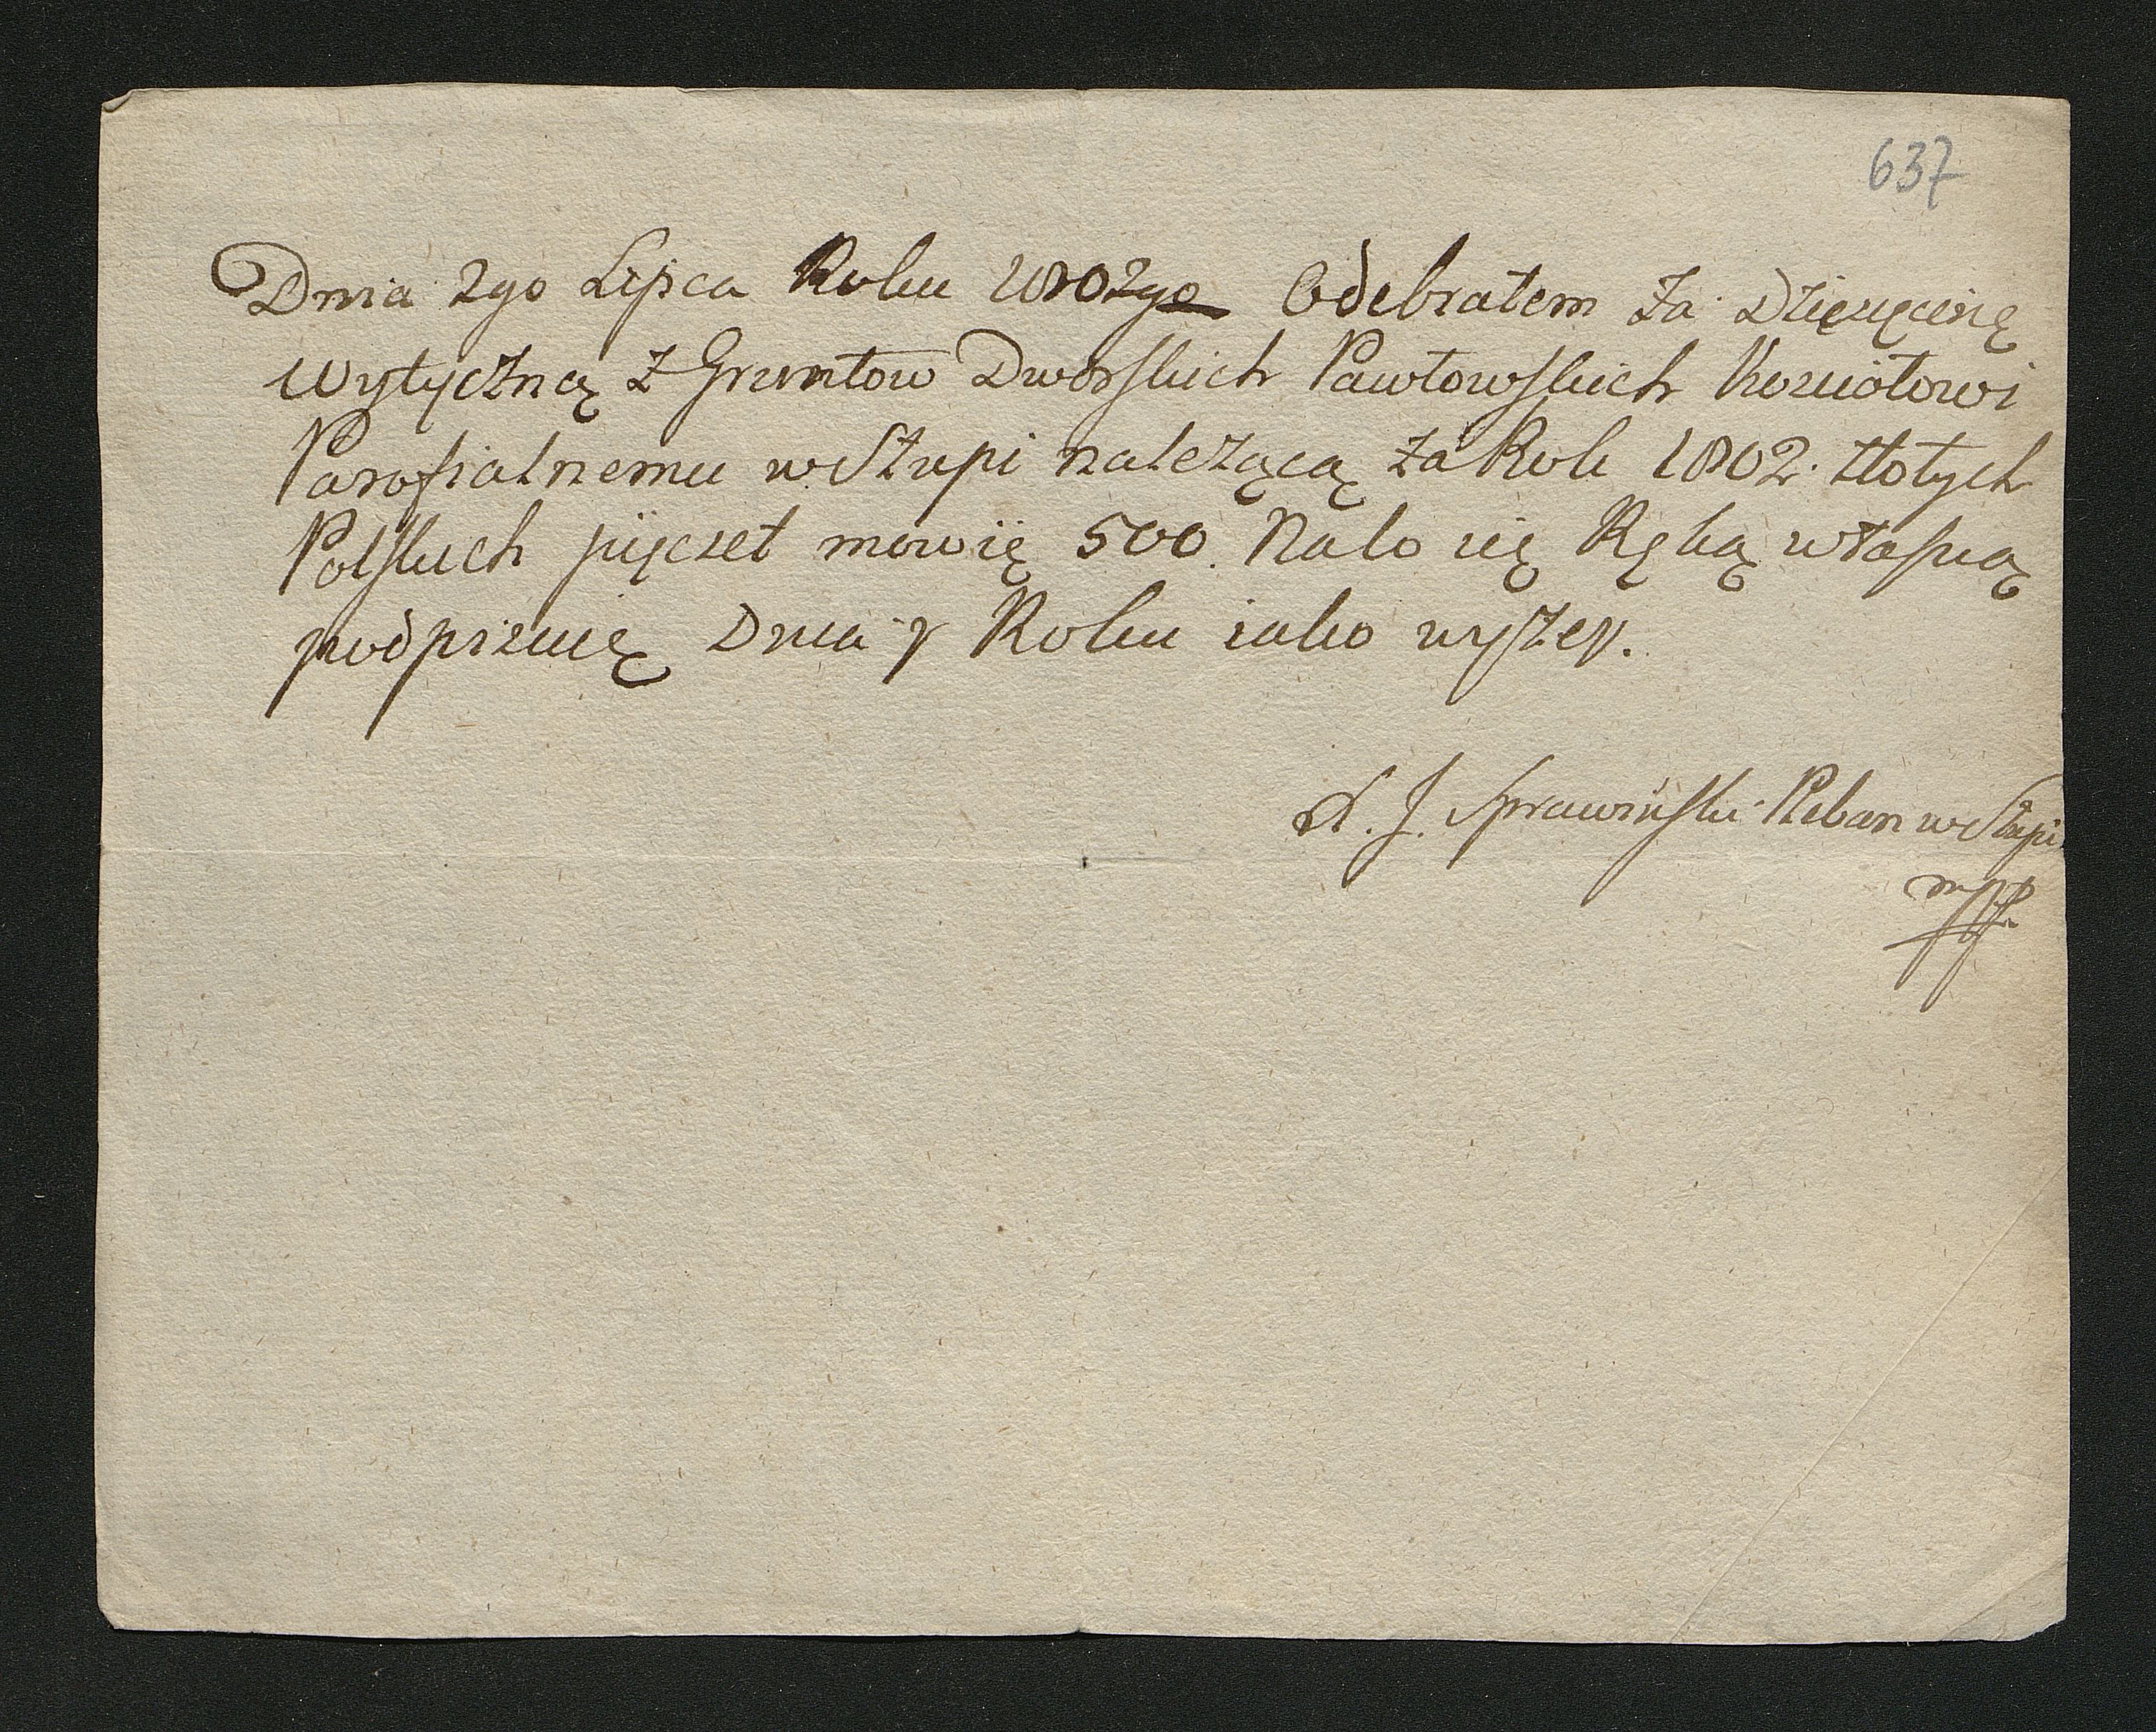 637
Dnia 2go Lipca Roku 1802go Odebrałem za Dziesięcinę
Wytyczną z Gruntow Dworskich Pawłowskich Kościołowi
Parafialnemu w Słupi należącą za Rok 1802. złotych
Polskich pięcset mowię 500. Nato się Ręką własną
podpisuię Dnia y Roku iako wyżey.
X. J. Sprawiński Pleban w Słupi
mpp